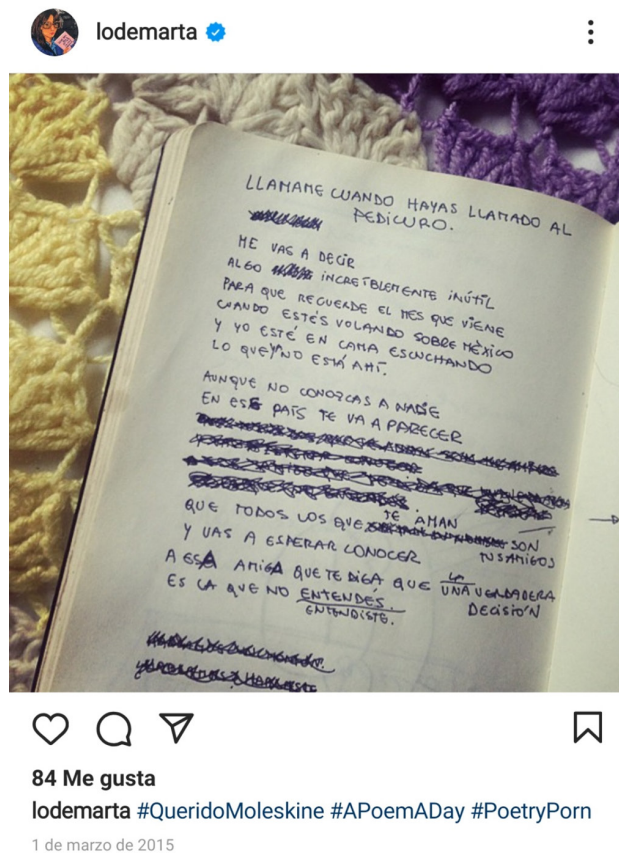 lodemarta
LLAMAME CUANDO HAYAS LLAMADO AL
PEDICURO.
ME VAS A DECIR
ALGO INCREÍBLEMENTE INÚTIL
PARA QUE RECUERDE EL MES QUE VIENE
CUANDO ESTÉS VOLANDO SOBRE MÉXICO
Y YO ESTÉ EN CAMA ESCUCHANDO
LO QUE YA NO ESTÁ AHÍ.
AUNQUE NO CONOZCAS A NADIE
EN ESE PAÍS TE VA A PARECER
QUE TODOS LOS QUE TE AMAN SON
TUS AMIGOS
Y VAS A ESPERAR CONOCER
A ESA AMIGA QUE TE DIGA QUE LA
UNA VERDADERA
DECISIÓN
ES LA QUE NO ENTENDÉS.
ENTENDISTE.
84 Me gusta
lodemarta #QueridoMoleskine #APoemADay #PoetryPorn
1 de marzo de 2015